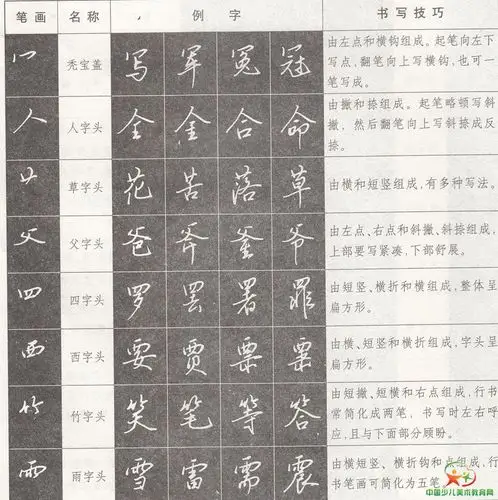 笔画 名称 例字 书写技巧
冖 秃宝盖 写 军 冤 冠
由左点和横钩组成。起笔向左下
写点，翻笔向上写横钩，也可一
笔写成。
人 人字头 全 金 合 命
由撇和捺组成。起笔略顿写斜
撇，然后翻笔向上写斜捺成反
捺。
艹 草字头 花 苦 落 草
由横和短竖组成，有多种写法。
父 父字头 爸 斧 釜 爷
由左点、右点和斜撇、斜捺组成，
上部要写紧凑，下部舒展。
四 四字头 罗 罢 署 罪
由短竖、横折和横组成，整体呈
扁方形。
西 西字头 要 贾 票 粟
由横、短竖和横折组成，字头呈
扁方形。
竹 竹字头 笑 笔 等 答
由短撇、短横和右点组成，行书
常简化成两笔，书写时左右呼
应，且与下面部分顾盼。
雨 雨字头 雪 雷 需 震
由横短竖、横折钩和点组成，行
书笔画可简化为五笔。
中国少儿美术教育网